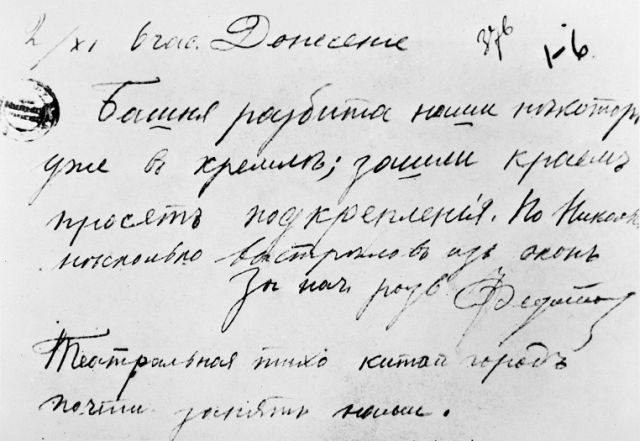 2/XI 6 час. Донесение 1-6.
Башня разбита наши нѣкоторы
уже в кремлѣ; зашли краемъ
просятъ подкрепленія. По Никольс
несколько выстрѣловъ изъ оконъ
За нач. разв. Федотов
Театральная тихо китай городъ
почти занятъ нами.